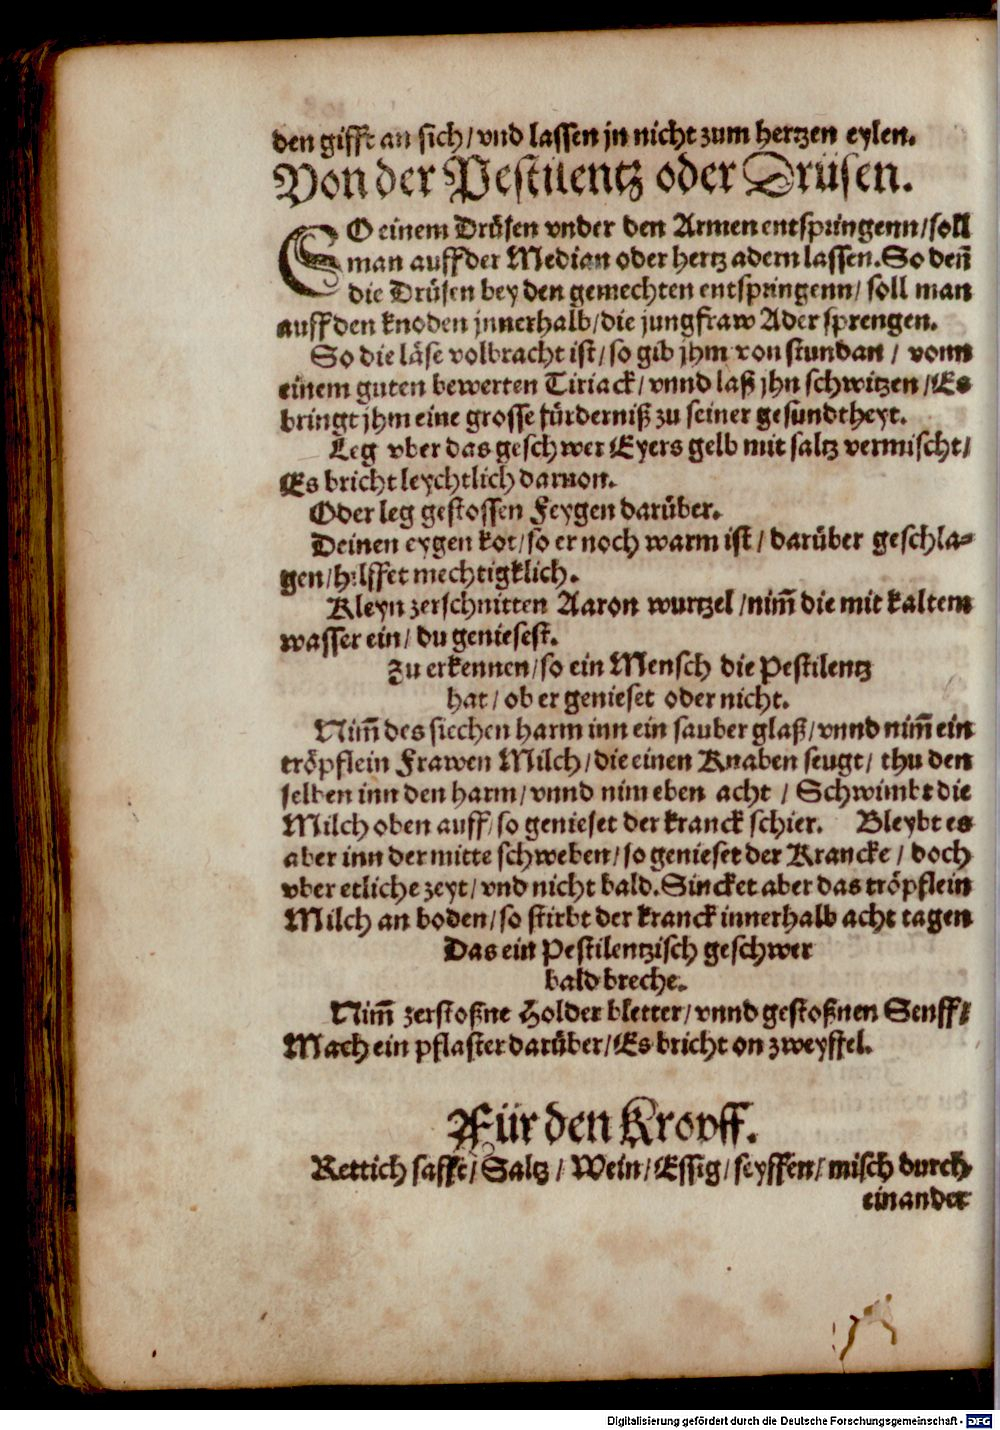 den gifft an sich / vnd lassen jn nicht zum hertzen eylen.
Von der Pestilentz oder Drüsen.
SO einem Drüsen vnder den Armen entspringenn / soll
man auff der Median oder hertz adern lassen. So deñ
die Drüsen bey den gemechten entspringenn / soll man
auff den knoden jnnerhalb / die jungfraw Ader sprengen.
So die läse volbracht ist / so gib jhm von stundan / vonn
einem guten bewerten Tiriack / vnnd laß jhn schwitzen / Es
bringt jhm eine grosse fürderniß zu seiner gesundtheyt.
Leg vber das geschwer Eyers gelb mit saltz vermischt /
Es bricht leychtlich daruon.
Oder leg gestossen Feygen darüber.
Deinen eygen kot / so er noch warm ist / darüber geschla=
gen / hilffet mechtigklich.
Kleyn zerschnitten Aaron wurtzel / nim̃ die mit kaltem
wasser ein / du geniesest.
Zu erkennen / so ein Mensch die Pestilentz
hat / ob er genieset oder nicht.
Nim̃ des siechen harm inn ein sauber glaß / vnnd nim̃ ein
tröpflein Frawen Milch / die einen Knaben seugt / thu den
selben inn den harm / vnnd nim eben acht / Schwimbt die
Milch oben auff / so genieset der kranck schier. Bleybt es
aber inn der mitte schweben / so genieset der Krancke / doch
vber etliche zeyt / vnd nicht bald. Sincket aber das tröpflein
Milch an boden / so stirbt der kranck innerhalb acht tagen
Das ein Pestilentzisch geschwer
bald breche.
Nim̃ zerstoßne Holder bletter / vnnd gestoßnen Senff /
Mach ein pflaster darüber / Es bricht on zweyffel.
Für den Kropff.
Rettich safft / Saltz / Wein / Essig / seyffen / misch durch
einander
Digitalisierung gefördert durch die Deutsche Forschungsgemeinschaft - DFG